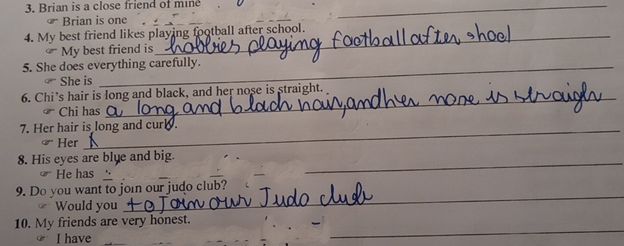 3. Brian is a close friend of mine
☞ Brian is one
4. My best friend likes playing football after school.
☞ My best friend is hobbies playing football after shool
5. She does everything carefully.
☞ She is
6. Chi's hair is long and black, and her nose is straight.
☞ Chi has a long and blach hair, and her nose is straigh
7. Her hair is long and curly.
☞ Her
8. His eyes are blye and big.
☞ He has
9. Do you want to join our judo club?
☞ Would you to Join our Judo club
10. My friends are very honest.
☞ I have